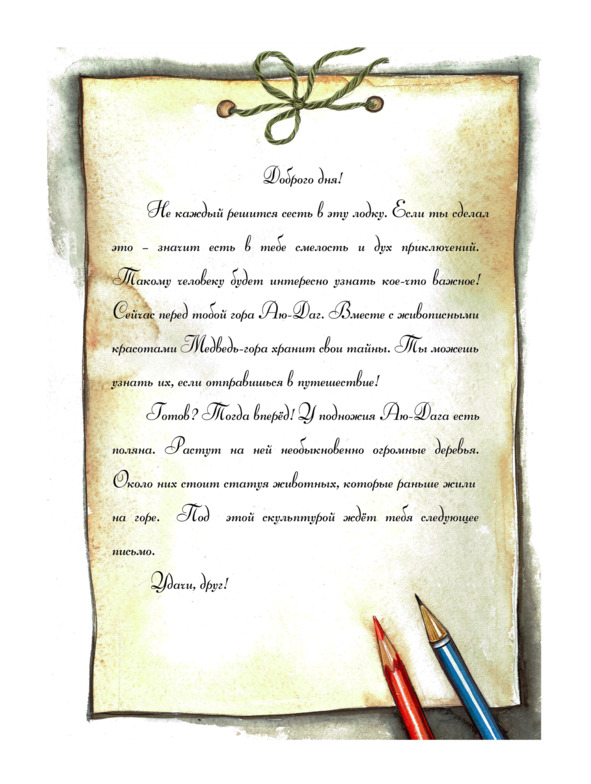 Доброго дня!
Не каждый решится сесть в эту лодку. Если ты сделал
это – значит есть в тебе смелость и дух приключений.
Такому человеку будет интересно узнать кое-что важное!
Сейчас перед тобой гора Аю-Даг. Вместе с живописными
красотами Медведь-гора хранит свои тайны. Ты можешь
узнать их, если отправишься в путешествие!
Готов? Тогда вперёд! У подножия Аю-Дага есть
поляна. Растут на ней необыкновенно огромные деревья.
Около них стоит статуя животных, которые раньше жили
на горе. Под этой скульптурой ждёт тебя следующее
письмо.
Удачи, друг!